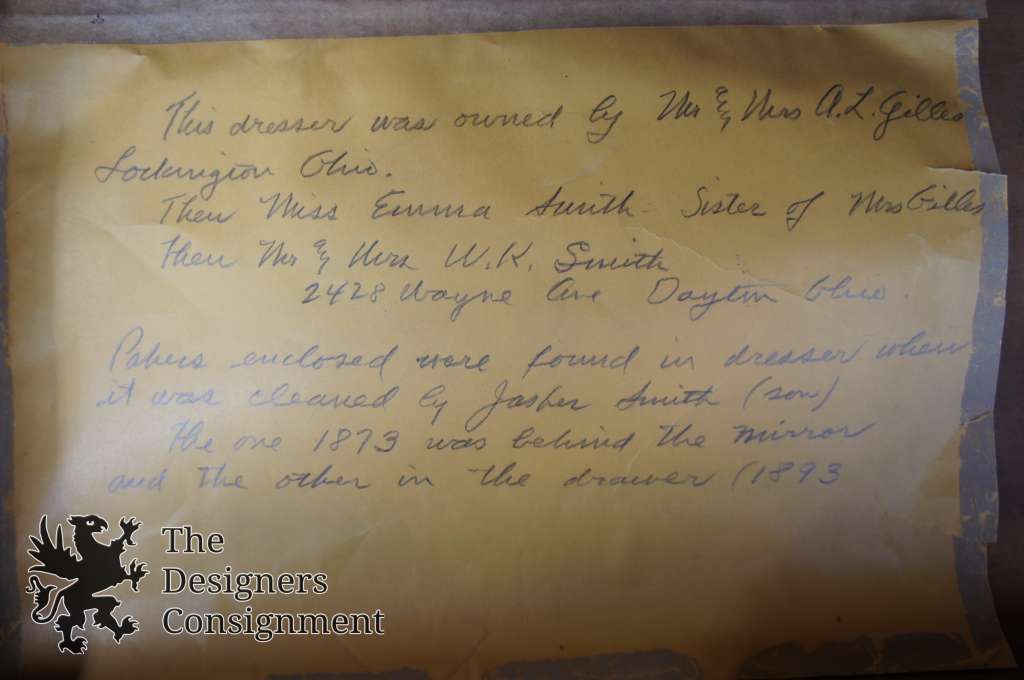 This dresser was owned by Mr & Mrs A.L. Gilles
Lockington Ohio.
Then Miss Emma Smith - Sister of Mrs Gilles
then Mr & Mrs W.K. Smith
2428 Wayne Ave Dayton Ohio.
Papers enclosed were found in dresser when
it was cleaned by Jasper Smith (son)
The one 1873 was behind the mirror
and the other in the drawer (1893
The
Designers
Consignment